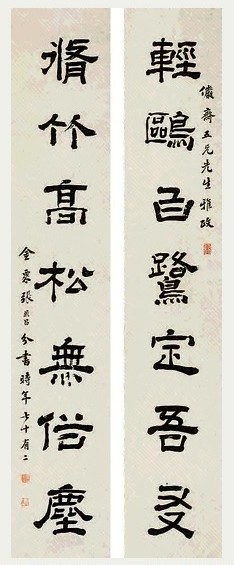 五兄先生雅政
輕鷗白鷺定吾友
脩竹高松無俗塵
金粟張分書時年七十有二